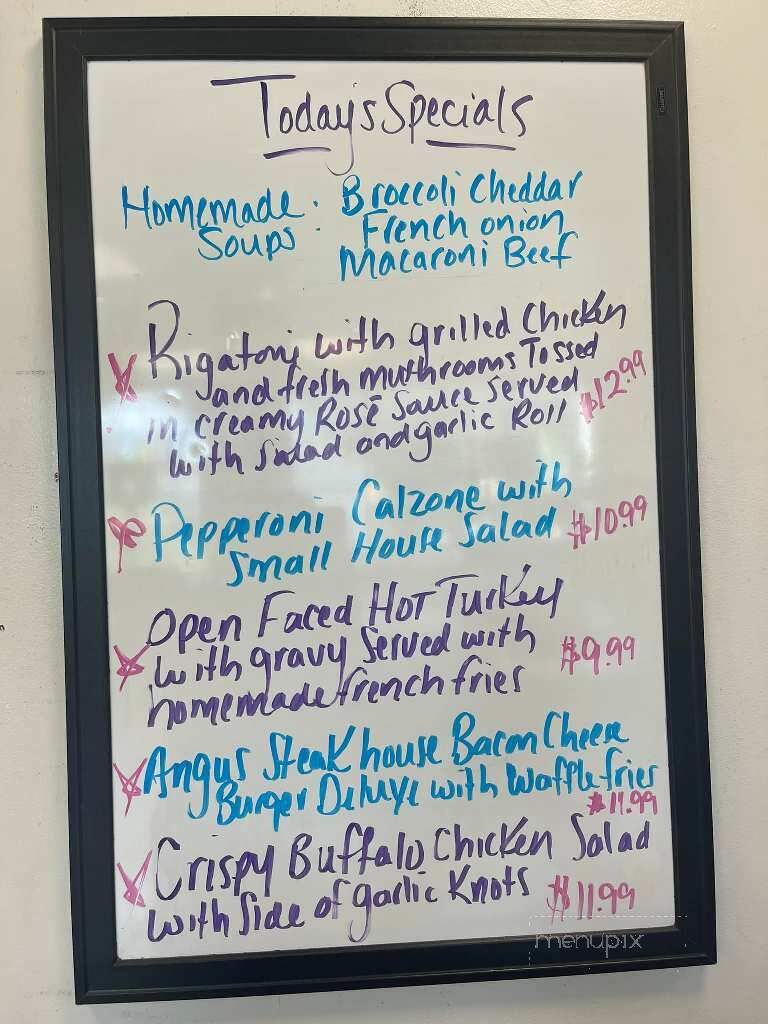 Today's Specials
Homemade : Broccoli Cheddar
Soups : French onion
Macaroni Beef
Rigatoni with grilled Chicken
and fresh muthrooms Tossed
in creamy Rosé Sauce served
with salad and garlic Roll $12.99
Pepperoni Calzone with
Small House Salad $10.99
Open Faced Hot Turkey
with gravy served with $9.99
homemade french fries
Angus Steakhouse Bacon Cheese
Burger Deluxe with Waffle fries
$11.99
Crispy Buffalo Chicken Salad
with side of garlic Knots $11.99
menupix